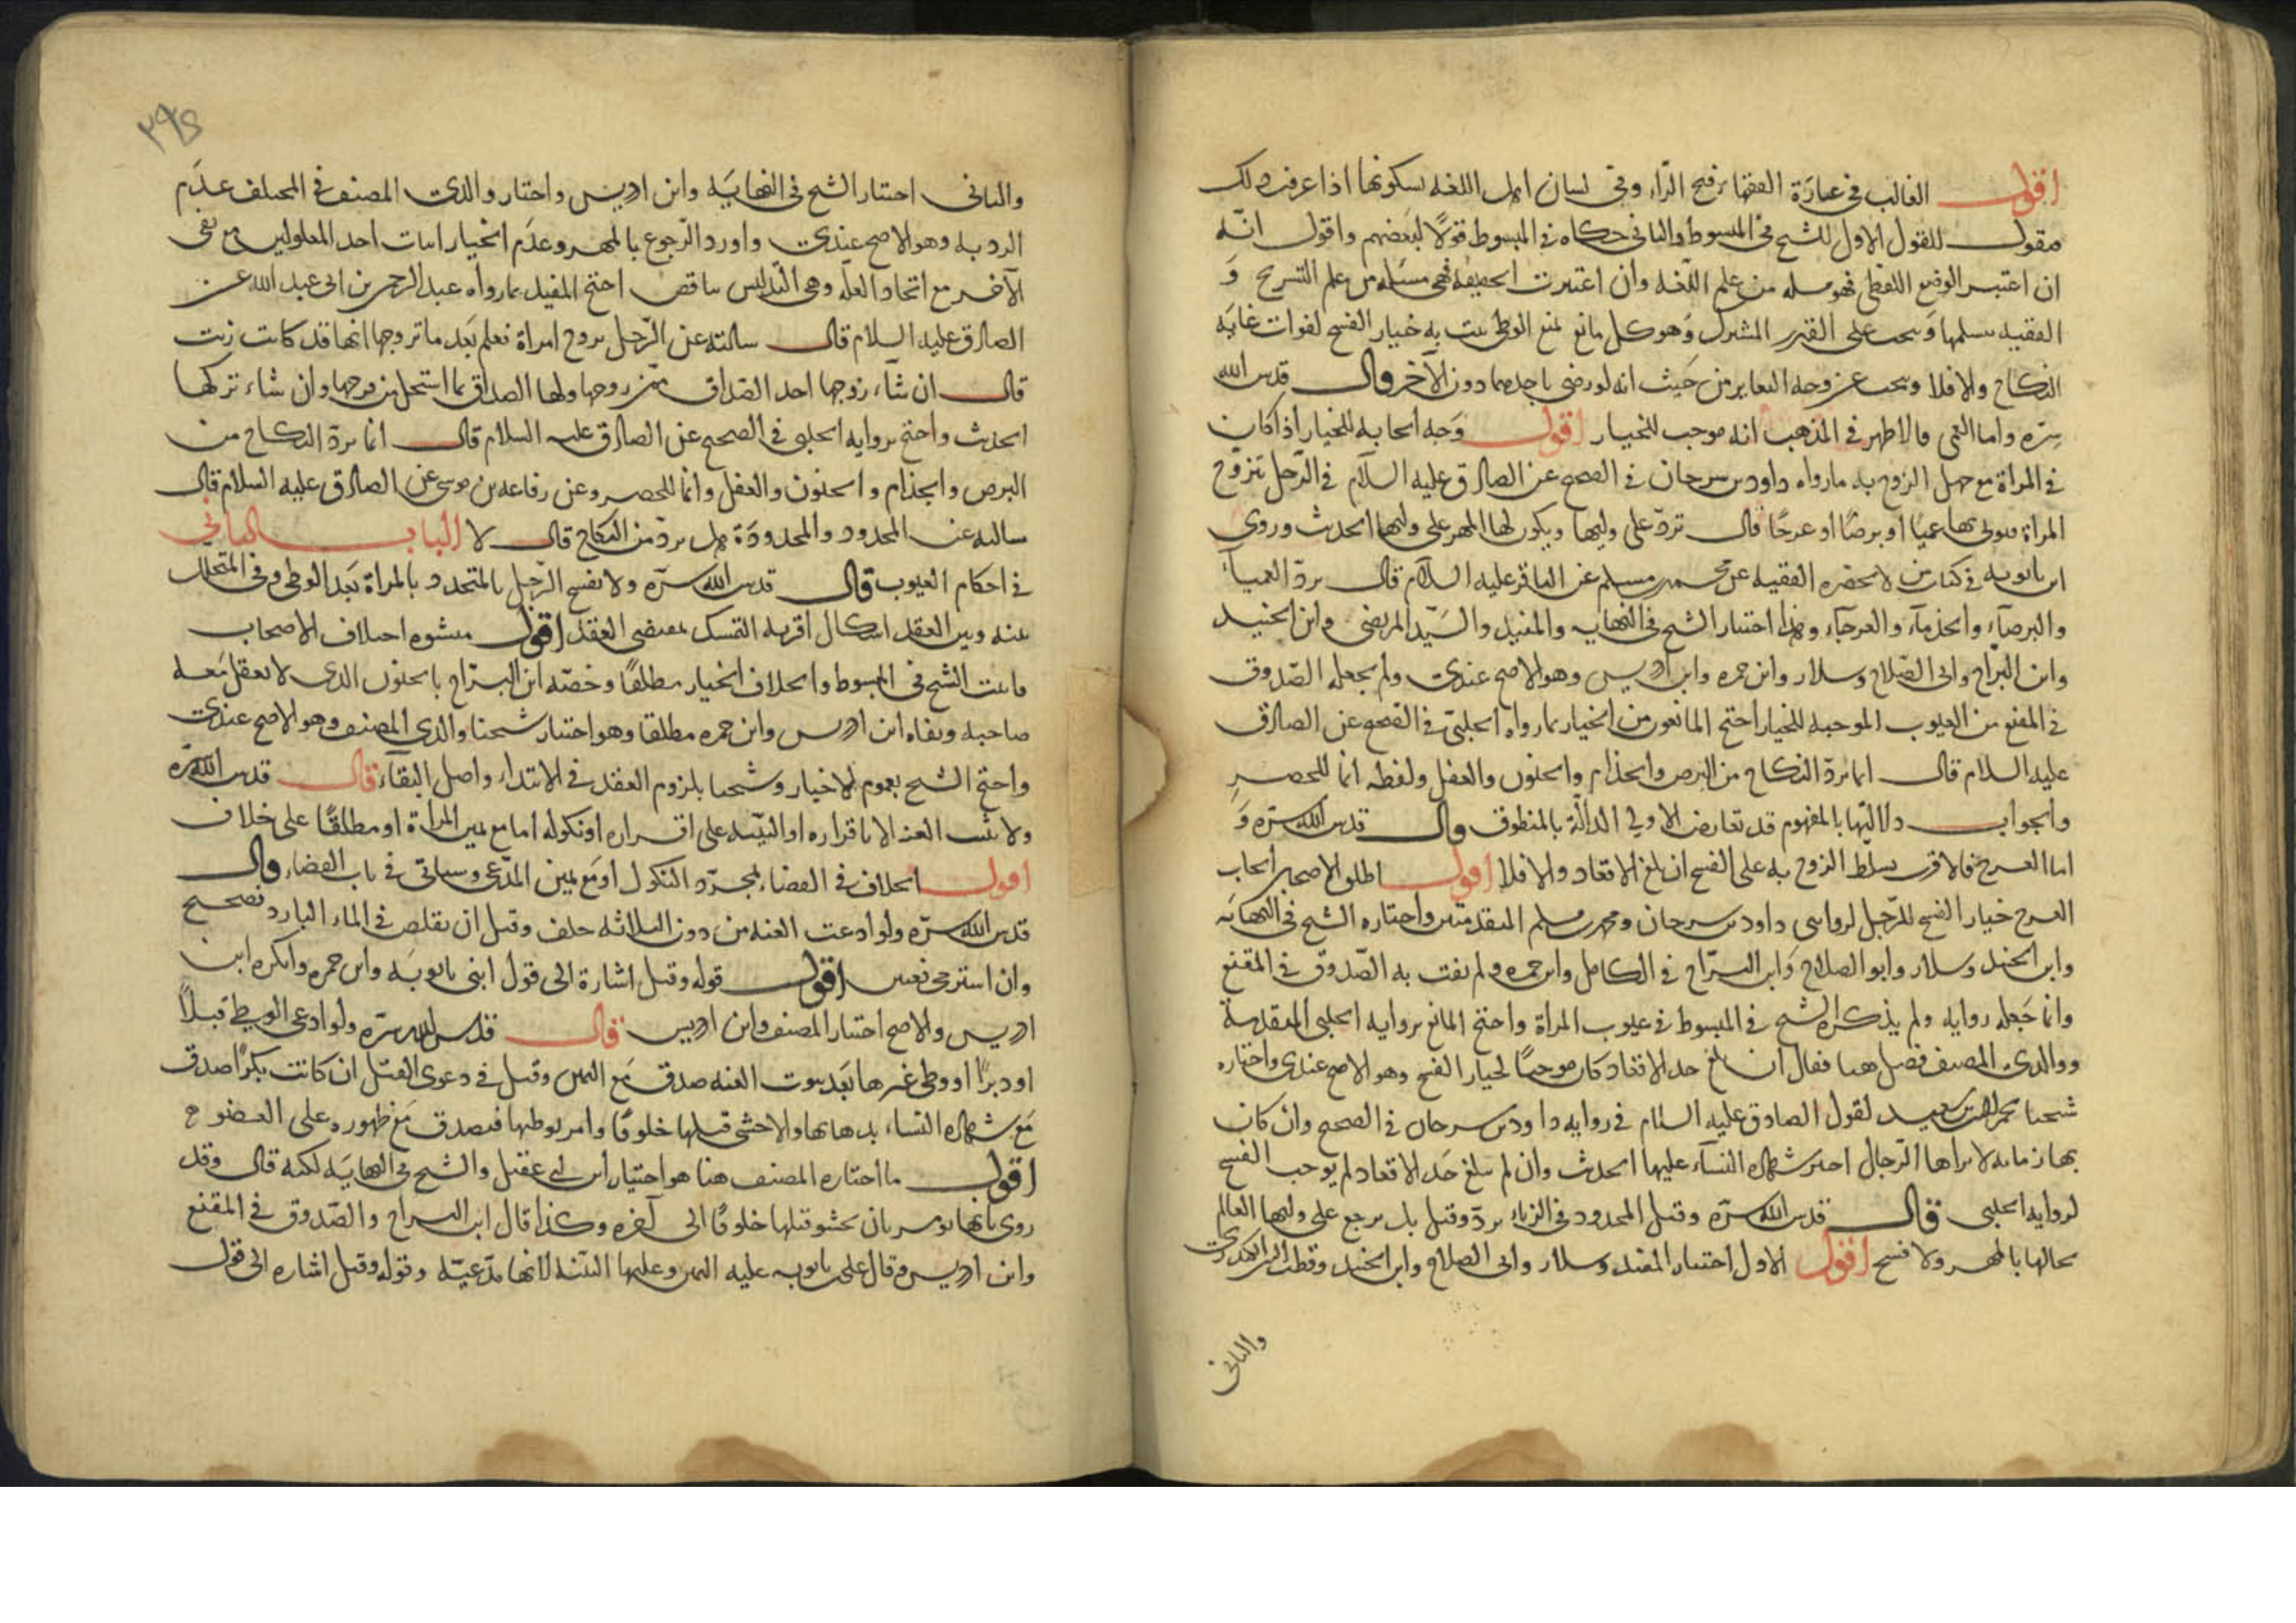 اقول الغالب في عبارة الفقهاء بفتح الراء وفي لسان اهل اللغة بسكونها اذا عرفت ذلك
فنقول للقول الاول للشيخ في المبسوط والثاني حكاه في المبسوط قولا لبعضهم واقول انه
ان اعتبر الوضع اللفظي فهو مسئلة من علم اللغة وان اعتبرت الحقيقة فهي مسئلة من علم التشريح و
الفقيه يتسلمها ويبحث على القدر المشترك وهو كل مانع يمنع الوطي يثبت به خيار الفسخ لفوات غاية
النكاح والا فلا ويبحث عن وجه التغاير من حيث انه لو رضي باحدهما دون الاخر قال قدس الله
سره واما العمى فالاظهر في المذهب انه موجب للخيار اقول وجه ايجابه للخيار اذا كان
في المراة مع جهل الزوج به ما رواه داود بن سرحان في الصحيح عن الصادق عليه السلام في الرجل يتزوج
المراة فيؤتى بها عمياء او برصا او عرجا قال ترد على وليها ويكون لها المهر على وليها الحديث وروى
ابن بابويه في كتاب من لا يحضره الفقيه عن محمد بن مسلم عن الباقر عليه السلام قال يرد العمياء
والبرصاء والجذماء والعرجاء وهذا اختيار الشيخ في النهاية والمفيد والسيد المرتضى وابن الجنيد
وابن البراج وابي الصلاح وسلار وابن حمزه وابن ادريس وهو الاصح عندي ولم يجعله الصدوق
في المقنع من العيوب الموجبة للخيار احتج المانعون من الخيار بما رواه الحلبي في الصحيح عن الصادق
عليه السلام قال انما يرد النكاح من البرص والجذام والجنون والعفل ولفظه انما للحصر
والجواب دلالتها بالمفهوم قد تعارض الاولى الدالة بالمنطوق قال قدس الله سره و
اما العرج فالاقرب تسلط الزوج به على الفسخ ان بلغ الاقعاد والا فلا اقول اطلق الاصحاب ايجاب
العرج خيار الفسخ للرجل لروايتي داود بن سرحان ومحمد بن مسلم المتقدمتين واختاره الشيخ في النهاية
وابن الجنيد وسلار وابو الصلاح وابن البراج في الكامل وابن حمزه ولم يفت به الصدوق في المقنع
وانما جعله رواية ولم يذكره الشيخ في المبسوط في عيوب المراة واحتج المانع برواية الحلبي المتقدمة
ووالدي المصنف فصل هنا فقال ان بلغ حد الاقعاد كان موجبا لخيار الفسخ وهو الاصح عندي واختاره
شيخنا نجم الدين بن سعيد لقول الصادق عليه السلام في رواية داود بن سرحان في الصحيح وان كان
بها زمانة لا يراها الرجال اجيز شهادة النساء عليها الحديث وان لم يبلغ حد الاقعاد لم يوجب الفسخ
لرواية الحلبي قال قدس الله سره وقيل المحدودة في الزناء يرد وقيل بل يرجع على وليها العالم
بحالها بالمهر ولا فسخ اقول الاول اختيار المفيد وسلار وابي الصلاح وابن الجنيد وقطب الدين الكيدري
والثاني
٣٩٤
والثاني اختيار الشيخ في النهاية وابن ادريس واختار والدي المصنف في المختلف عدم
الرد به وهو الاصح عندي واورد الرجوع بالمهر وعدم الخيار اثبات احد المعلولين مع نفي
الآخر مع اتحاد العلة وهي التدليس تناقض احتج المفيد بما رواه عبد الرحمن بن ابي عبد الله عن
الصادق عليه السلام قال سالته عن الرجل يزوج امراة فعلم بعد ما تزوجها انها قد كانت زنت
قال ان شاء زوجها اخذ الصداق ممن زوجها ولها الصداق بما استحل من فرجها وان شاء تركها
الحديث واحتج برواية الحلبي في الصحيح عن الصادق عليه السلام قال انما يرد النكاح من
البرص والجذام والجنون والعفل وانما للحصر وعن رفاعة بن موسى عن الصادق عليه السلام قال
سالته عن المحدود والمحدودة هل يرد من النكاح قال لا الباب الثاني
في احكام العيوب قال قدس الله سره ولا يفسخ الرجل بالمتجدد بالمراة بعد الوطي وفي المتخلل
بينه وبين العقد اشكال اقربه التمسك بمقتضى العقد اقول منشؤه اختلاف الاصحاب
فاثبت الشيخ في المبسوط والخلاف الخيار مطلقا وخصه ابن البراج بالجنون الذي لا يعقل معه
صاحبه ونفاه ابن ادريس وابن حمزه مطلقا وهو اختيار شيخنا والدي المصنف وهو الاصح عندي
واحتج الشيخ بعموم الاخبار وشيخنا بلزوم العقد في الابتداء واصل البقاء قال قدس الله سره
ولا يثبت العنة الا باقراره او البينة على اقراره او نكوله اما مع يمين المراة او مطلقا على خلاف
اقول الخلاف في القضاء بمجرد النكول او مع يمين المدعي وسياتي في باب القضاء قال
قدس الله سره ولو ادعت العنة من دون الثلاثة حلف وقيل ان تقلص في الماء البارد فصحيح
وان استرخى فعنين اقول قوله وقيل اشارة الى قول ابني بابويه وابن حمزه وانكره ابن
ادريس والاصح اختيار المصنف وابن ادريس قال قدس الله سره ولو ادعى الوطي قبلا
او دبرا او وطي غيرها بعد ثبوت العنة صدق مع اليمين وقيل في دعوى القبل ان كانت بكرا صدق
مع شهادة النساء بذهابها والا حشي قبلها خلوقا وامر بوطيها فيصدق مع ظهوره على العضو ح
اقول ما اختاره المصنف هنا هو اختيار ابن ابي عقيل والشيخ في النهاية لكنه قال وقد
روى بانها تؤمر بان يحشو قبلها خلوقا الى آخره وكذا قال ابن البراج والصدوق في المقنع
وابن ادريس وقال علي بن بابويه عليه اليمين وعليها البينة لانها مدعية وقوله وقيل اشارة الى قول